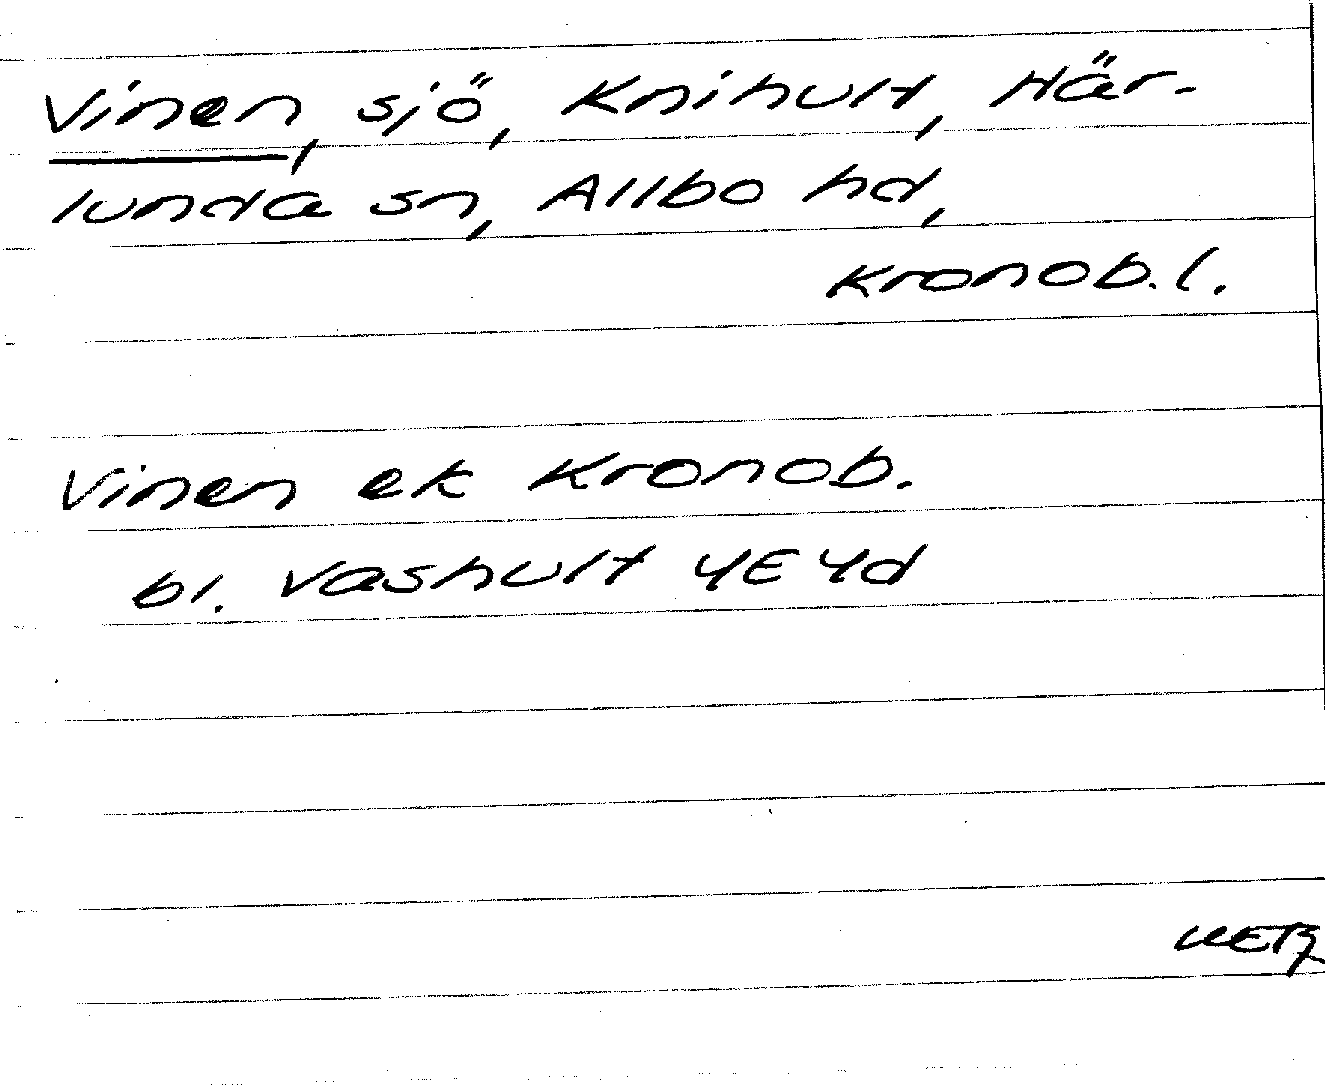 Vinen, sjö, Knihult, Här-
lunda sn, Allbo hd,
Kronob. l.
Vinen ek Kronob.
bl. Vashult 4E 4d